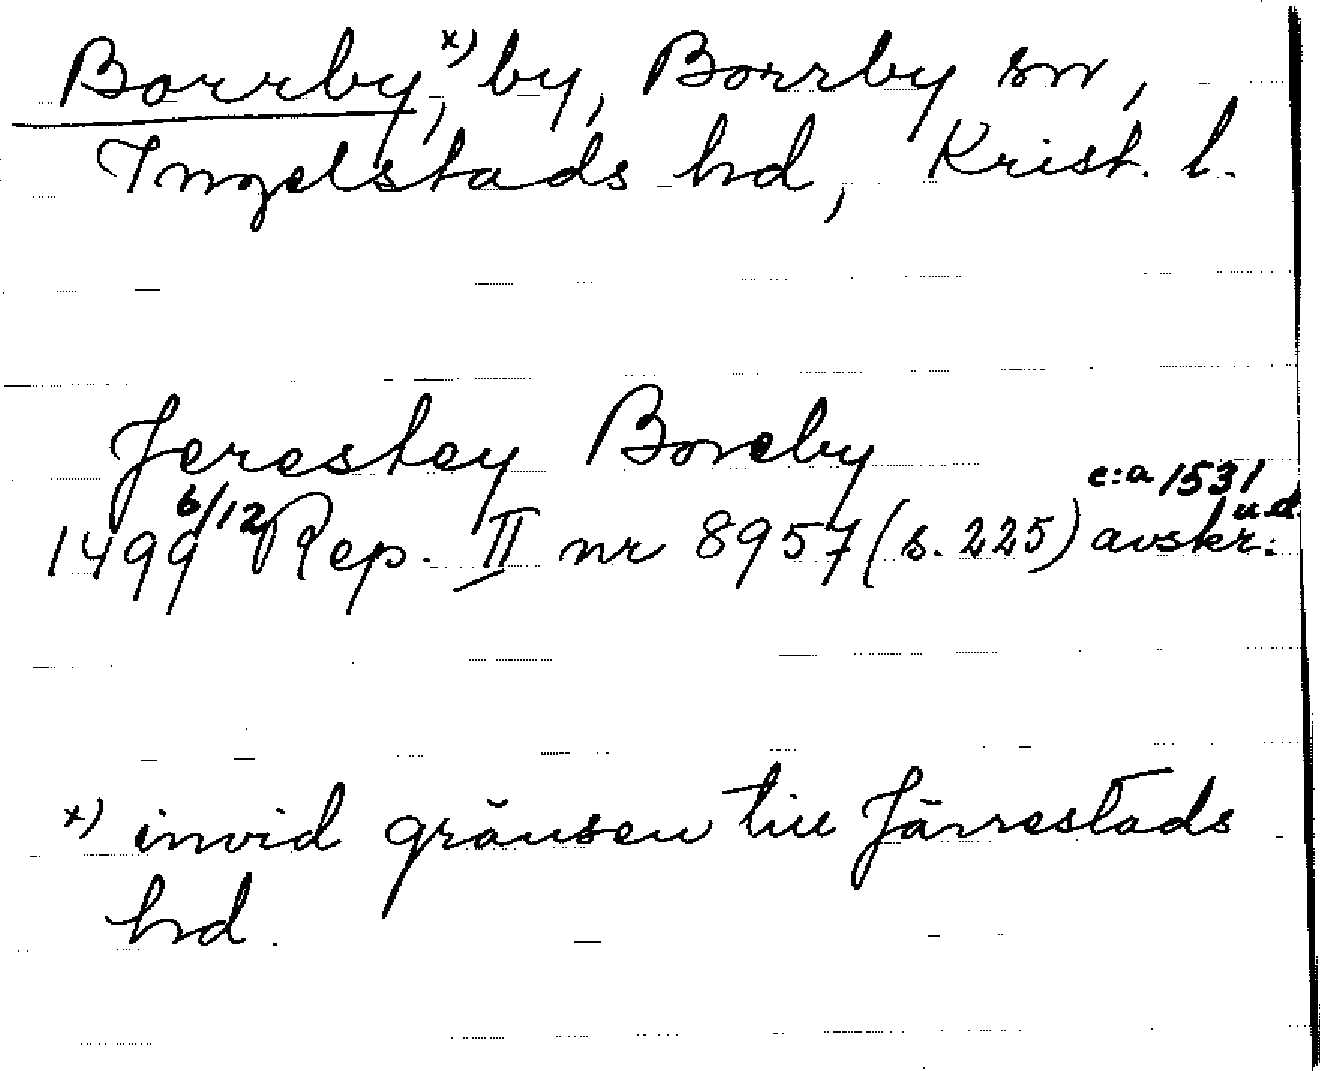 Borrby,ˣ⁾ by, Borrby sn,
Ingelstads hd, Krist. l.
Jerestey Boreby
1499 6/12 Rep. II nr 8957 (s. 225) avskr. c:a 1531 u.d.
x) invid gränsen till Järrestads
hd.